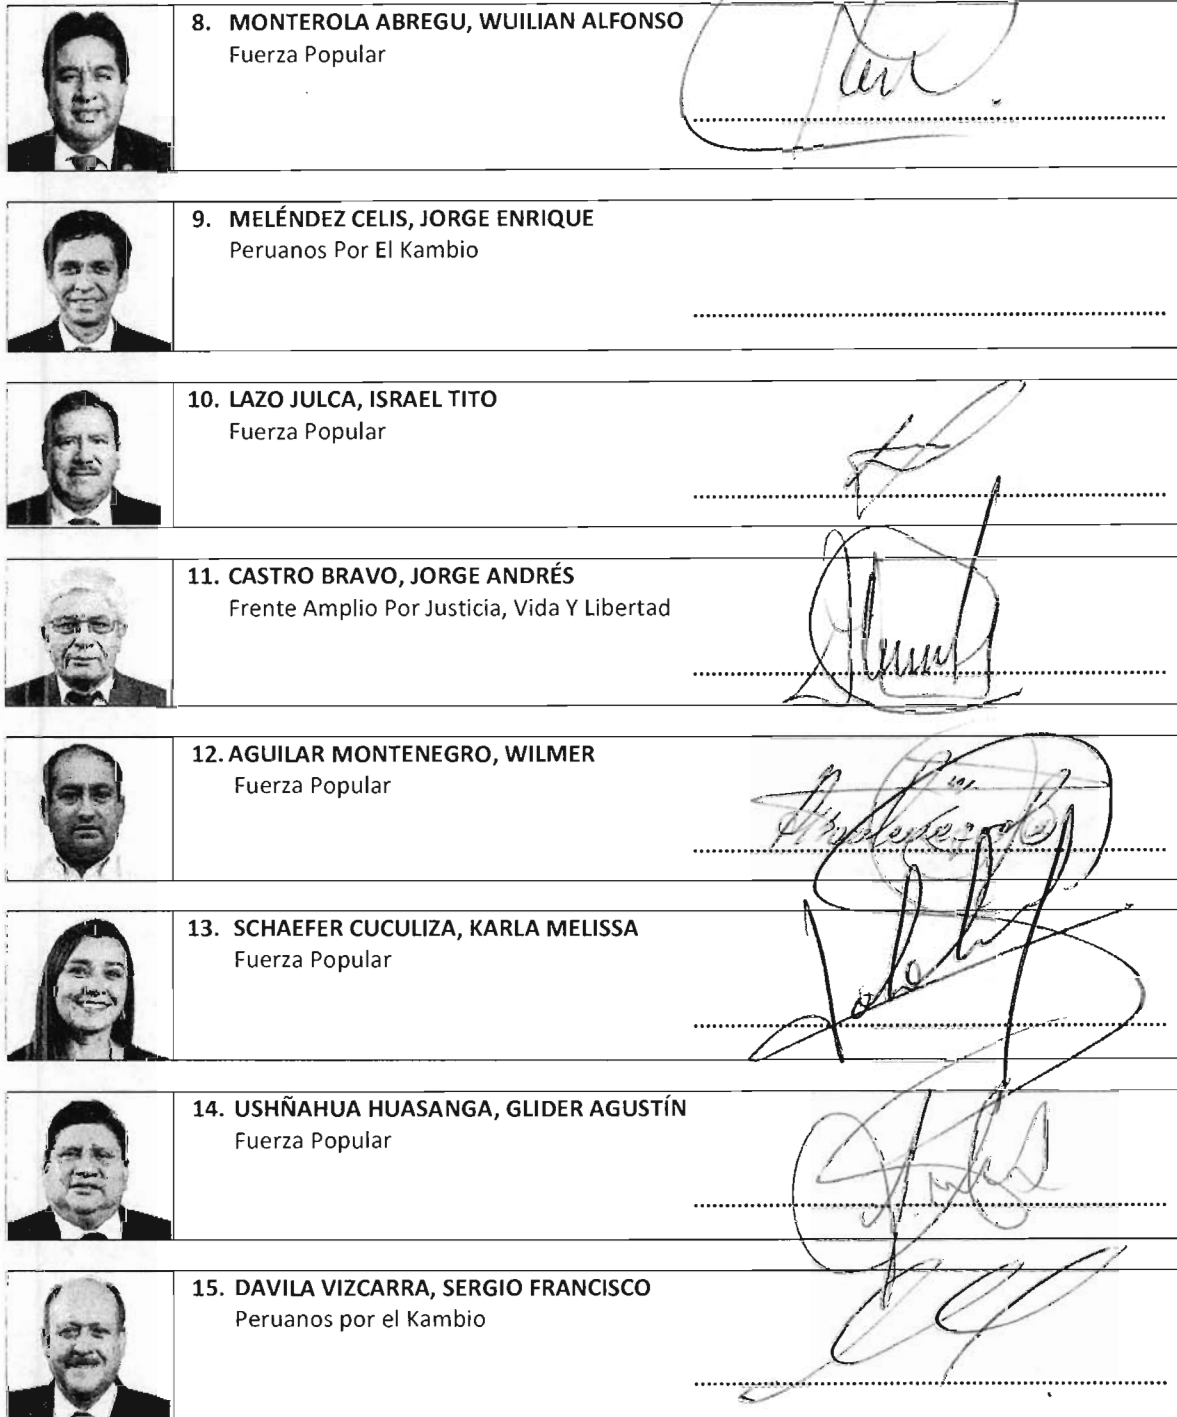 8. MONTEROLA ABREGU, WUILIAN ALFONSO
Fuerza Popular
9. MELÉNDEZ CELIS, JORGE ENRIQUE
Peruanos Por El Kambio
10. LAZO JULCA, ISRAEL TITO
Fuerza Popular
11. CASTRO BRAVO, JORGE ANDRÉS
Frente Amplio Por Justicia, Vida Y Libertad
12. AGUILAR MONTENEGRO, WILMER
Fuerza Popular
13. SCHAEFER CUCULIZA, KARLA MELISSA
Fuerza Popular
14. USHÑAHUA HUASANGA, GLIDER AGUSTÍN
Fuerza Popular
15. DAVILA VIZCARRA, SERGIO FRANCISCO
Peruanos por el Kambio